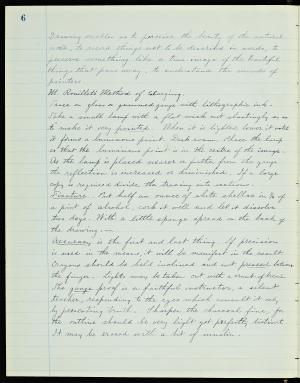 6
Drawing enables us to perceive the beauty of the natural
world, to record things not to be described in words, to
preserve something like a true image of the beautiful
things that pass away, to understand the minds of
painters.
M. Rouillet's Method of Studying.
Trace on glass a gummed gauze with lithographic ink.
Take a small lamp with a flat wick cut slantingly so as
to make it very pointed. When it is lighted lower it
to form a luminous point. Dark room. Place the lamp
so that the luminous point is in the centre of the image.
As the lamp is placed nearer or farther from the gauze
the reflection is increased or diminished. If a large
copy is required divide the tracing into sections.
Fixature. Put half an ounce of white shellac in 1/4 of
a pint of alcohol, cork it well and let it dissolve
two days. With a little sponge spread on the back of
the drawing.
Accuracy is the first and last thing. If precision
is used in the means, it will be manifest in the result.
Crayons should be held inclined and not pressed between
the fingers. Lights may be taken out with a crumb of bread.
The gauze proof is a faithful instructor, a silent
teacher, responding to the eyes which consult it only
by presenting truth. Sharpen the charcoal fine, for
the outline should be very light yet perfectly distinct.
It may be erased with a bit of muslin